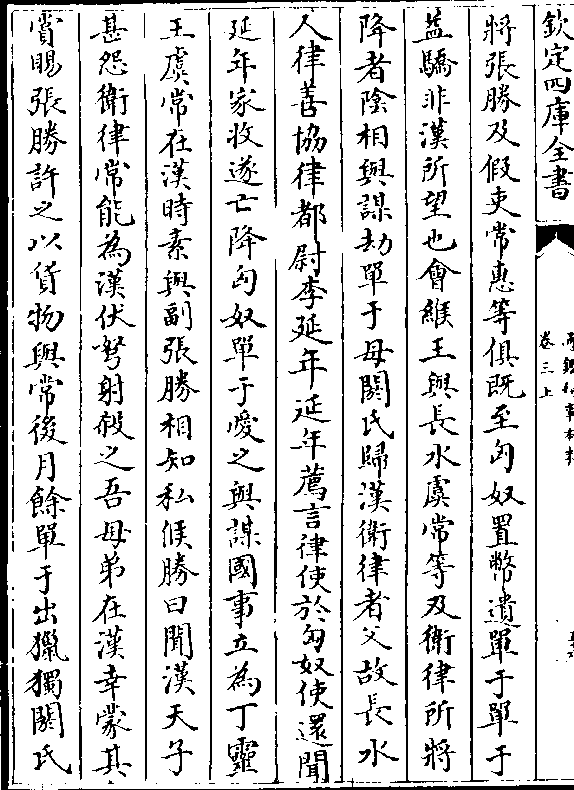 欽定四庫全書
卷三上
將張勝及假吏常惠等俱既至匈奴置幣遺單于單于
益驕非漢所望也會緱王與長水虞常等及衛律所將
降者陰相與謀劫單于母閼氏歸漢衛律者父故長水
人律善協律都尉李延年延年薦言律使於匈奴使還聞
延年家收遂亡降匈奴單于愛之與謀國事立為丁靈
王虞常在漢時素與副張勝相知私候勝曰聞漢天子
甚怨衛律常能為漢伏弩射殺之吾母弟在漢幸蒙其
賞賜張勝許之以貨物與常後月餘單于出獵獨閼氏